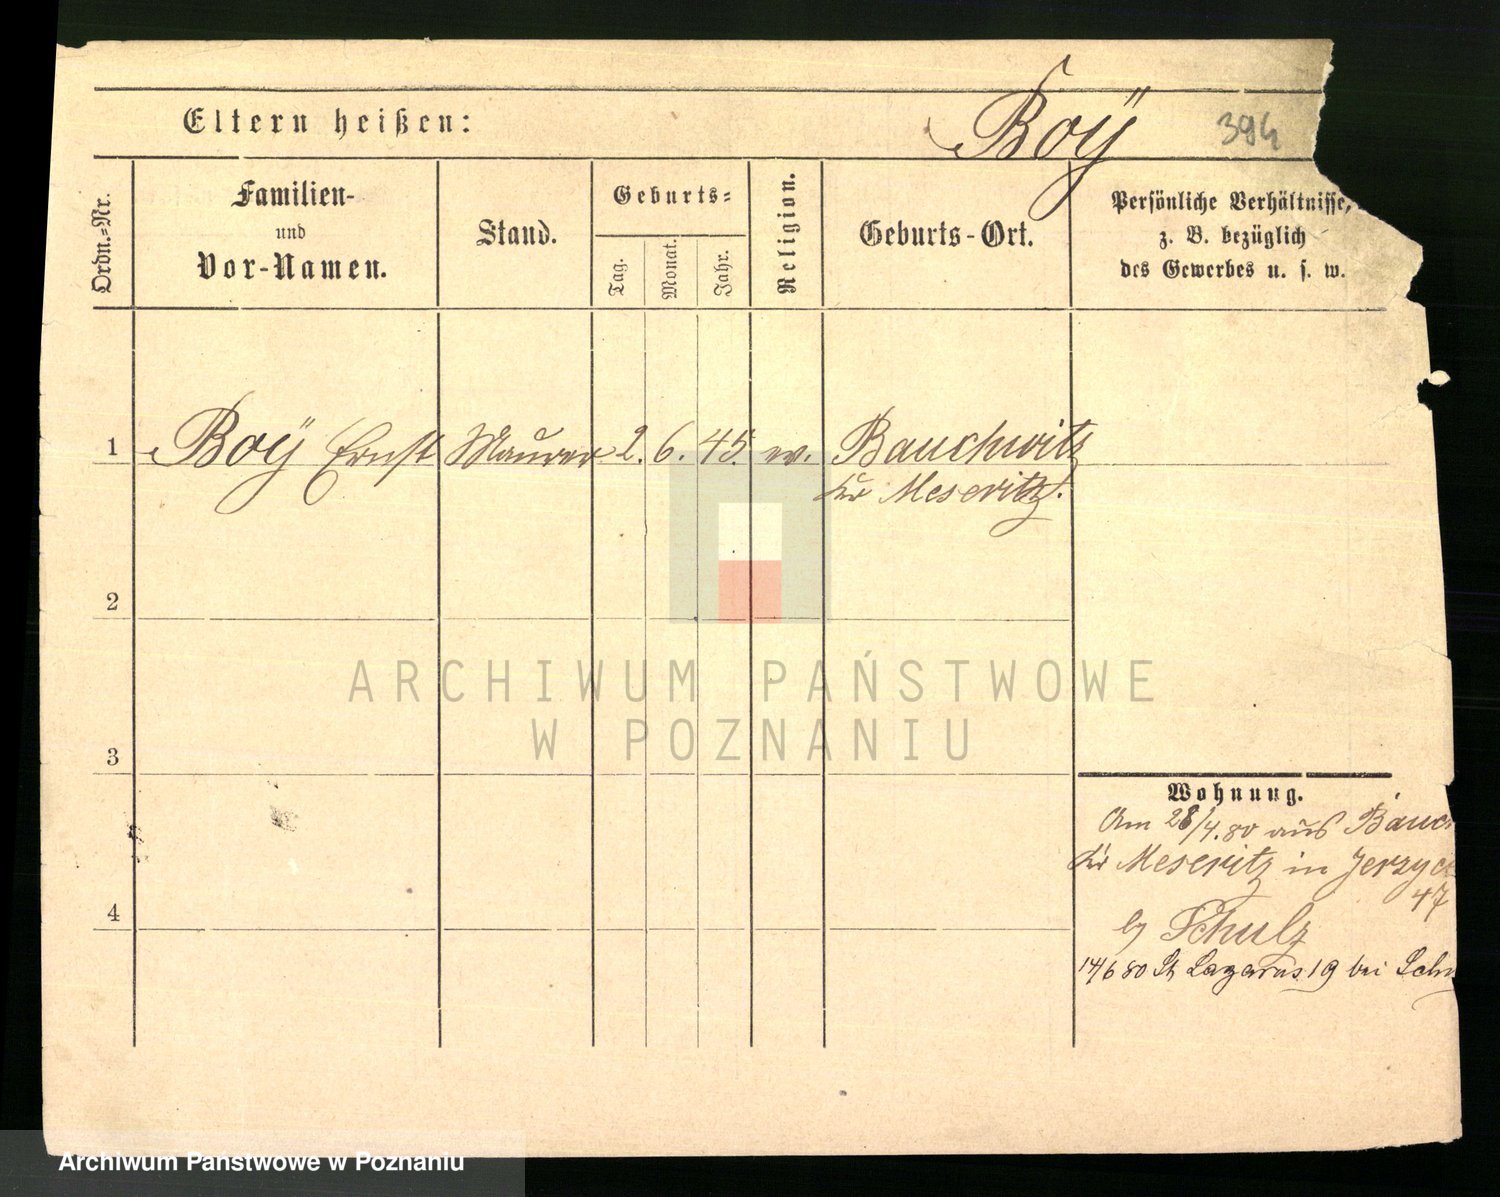 Boÿ
394
Eltern heißen:
Ordn.-Nr.
Familien-
und
Vor-Namen.
Stand.
Geburts-
Tag.
Monat.
Jahr.
Religion.
Geburts-Ort.
Persönliche Verhältnisse,
z. B. bezüglich
des Gewerbes u. s. w.
1 Boÿ Ernst Maurer 2. 6. 45. ev. Bauchwitz
Kr Meseritz.
2
3
4
Wohnung.
Am 28/4.80 aus Bauc
Kr Meseritz in Jerzyc
47
by Schulz
14/6 80 St Lazarus 19 bei Sch
ARCHIWUM PAŃSTWOWE
W POZNANIU
Archiwum Państwowe w Poznaniu